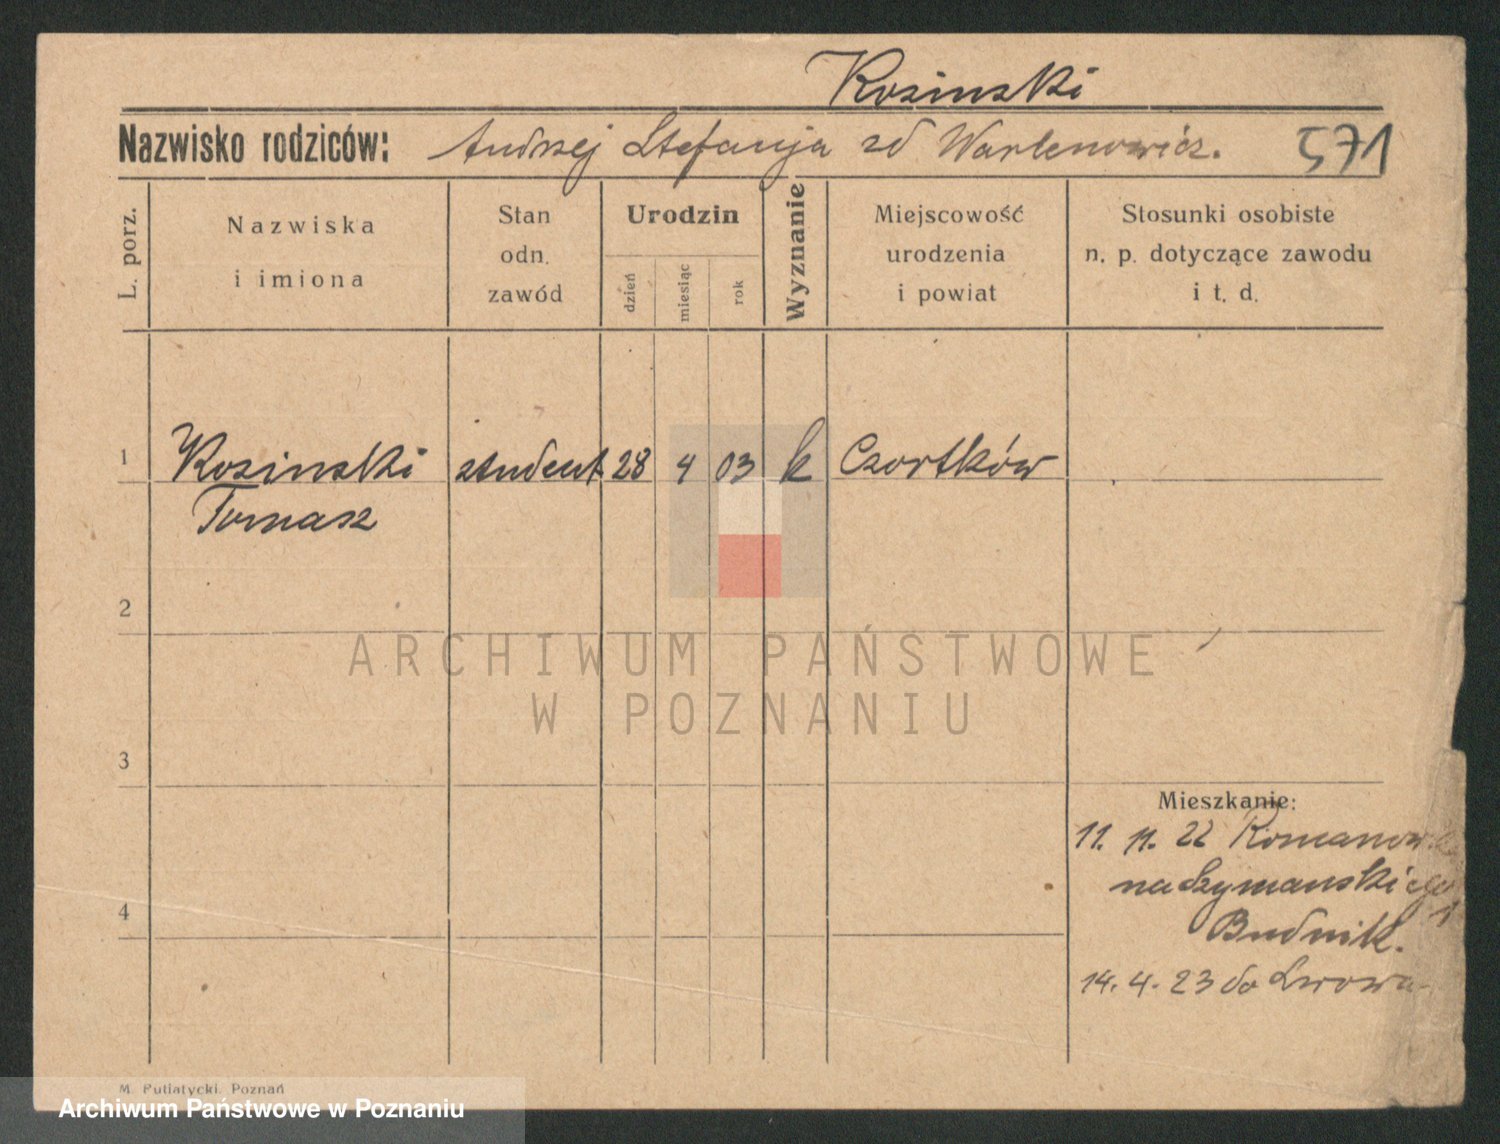 Kosinski
Nazwisko rodziców: Andrzej Stefanja zd Wartenowicz. 571
L. porz.
Nazwiska
i imiona
Stan
odn.
zawód
Urodzin
dzień
miesiąc
rok
Wyznanie
Miejscowość
urodzenia
i powiat
Stosunki osobiste
n. p. dotyczące zawodu
i t. d.
1 Kosinski student 28 4 03 k Czortków
Tomasz
2
3
4
Mieszkanie:
11. 11. 22
na Szymanskiego
1
Budnik.
14. 4. 23 do Lwowa
M. Putiatycki, Poznań
ARCHIWUM PAŃSTWOWE
W POZNANIU
Archiwum Państwowe w Poznaniu